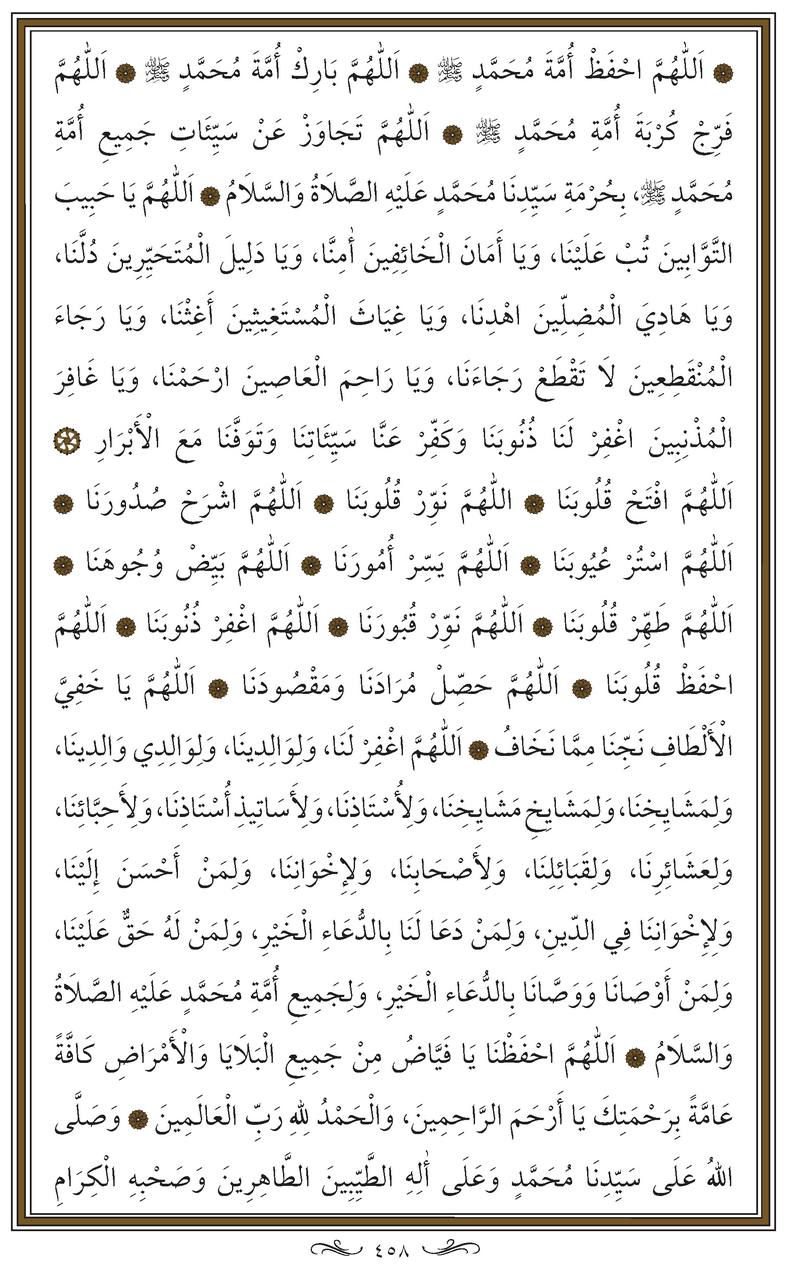 اَللّٰهُمَّ احْفَظْ أُمَّةَ مُحَمَّدٍ ﷺ اَللّٰهُمَّ بَارِكْ أُمَّةَ مُحَمَّدٍ ﷺ اَللّٰهُمَّ
فَرِّجْ كُرْبَةَ أُمَّةِ مُحَمَّدٍ ﷺ اَللّٰهُمَّ تَجَاوَزْ عَنْ سَيِّئَاتِ جَمِيعِ أُمَّةِ
مُحَمَّدٍ ﷺ، بِحُرْمَةِ سَيِّدِنَا مُحَمَّدٍ عَلَيْهِ الصَّلَاةُ وَالسَّلَامُ اَللّٰهُمَّ يَا حَبِيبَ
التَّوَّابِينَ تُبْ عَلَيْنَا، وَيَا أَمَانَ الْخَائِفِينَ أٰمِنَّا، وَيَا دَلِيلَ الْمُتَحَيِّرِينَ دُلَّنَا،
وَيَا هَادِيَ الْمُضِلِّينَ اهْدِنَا، وَيَا غِيَاثَ الْمُسْتَغِيثِينَ أَغِثْنَا، وَيَا رَجَاءَ
الْمُنْقَطِعِينَ لَا تَقْطَعْ رَجَاءَنَا، وَيَا رَاحِمَ الْعَاصِينَ ارْحَمْنَا، وَيَا غَافِرَ
الْمُذْنِبِينَ اغْفِرْ لَنَا ذُنُوبَنَا وَكَفِّرْ عَنَّا سَيِّئَاتِنَا وَتَوَفَّنَا مَعَ الْأَبْرَارِ
اَللّٰهُمَّ افْتَحْ قُلُوبَنَا اللّٰهُمَّ نَوِّرْ قُلُوبَنَا اَللّٰهُمَّ اشْرَحْ صُدُورَنَا
اَللّٰهُمَّ اسْتُرْ عُيُوبَنَا اَللّٰهُمَّ يَسِّرْ أُمُورَنَا اَللّٰهُمَّ بَيِّضْ وُجُوهَنَا
اَللّٰهُمَّ طَهِّرْ قُلُوبَنَا اَللّٰهُمَّ نَوِّرْ قُبُورَنَا اَللّٰهُمَّ اغْفِرْ ذُنُوبَنَا اَللّٰهُمَّ
احْفَظْ قُلُوبَنَا اَللّٰهُمَّ حَصِّلْ مُرَادَنَا وَمَقْصُودَنَا اَللّٰهُمَّ يَا خَفِيَّ
الْأَلْطَافِ نَجِّنَا مِمَّا نَخَافُ اَللّٰهُمَّ اغْفِرْ لَنَا، وَلِوَالِدِينَا، وَلِوَالِدِي وَالِدِينَا،
وَلِمَشَايِخِنَا، وَلِمَشَايِخِ مَشَايِخِنَا، وَلِأُسْتَاذِنَا، وَلِأَسَاتِيذِ أُسْتَاذِنَا، وَلِأَحِبَّائِنَا،
وَلِعَشَائِرِنَا، وَلِقَبَائِلِنَا، وَلِأَصْحَابِنَا، وَلِإِخْوَانِنَا، وَلِمَنْ أَحْسَنَ إِلَيْنَا،
وَلِإِخْوَانِنَا فِي الدِّينِ، وَلِمَنْ دَعَا لَنَا بِالدُّعَاءِ الْخَيْرِ، وَلِمَنْ لَهُ حَقٌّ عَلَيْنَا،
وَلِمَنْ أَوْصَانَا وَوَصَّانَا بِالدُّعَاءِ الْخَيْرِ، وَلِجَمِيعِ أُمَّةِ مُحَمَّدٍ عَلَيْهِ الصَّلَاةُ
وَالسَّلَامُ اَللّٰهُمَّ احْفَظْنَا يَا فَيَّاضُ مِنْ جَمِيعِ الْبَلَايَا وَالْأَمْرَاضِ كَافَّةً
عَامَّةً بِرَحْمَتِكَ يَا أَرْحَمَ الرَّاحِمِينَ، وَالْحَمْدُ لِلّٰهِ رَبِّ الْعَالَمِينَ وَصَلَّى
اللهُ عَلَى سَيِّدِنَا مُحَمَّدٍ وَعَلَى أٰلِهِ الطَّيِّبِينَ الطَّاهِرِينَ وَصَحْبِهِ الْكِرَامِ
٤٥٨